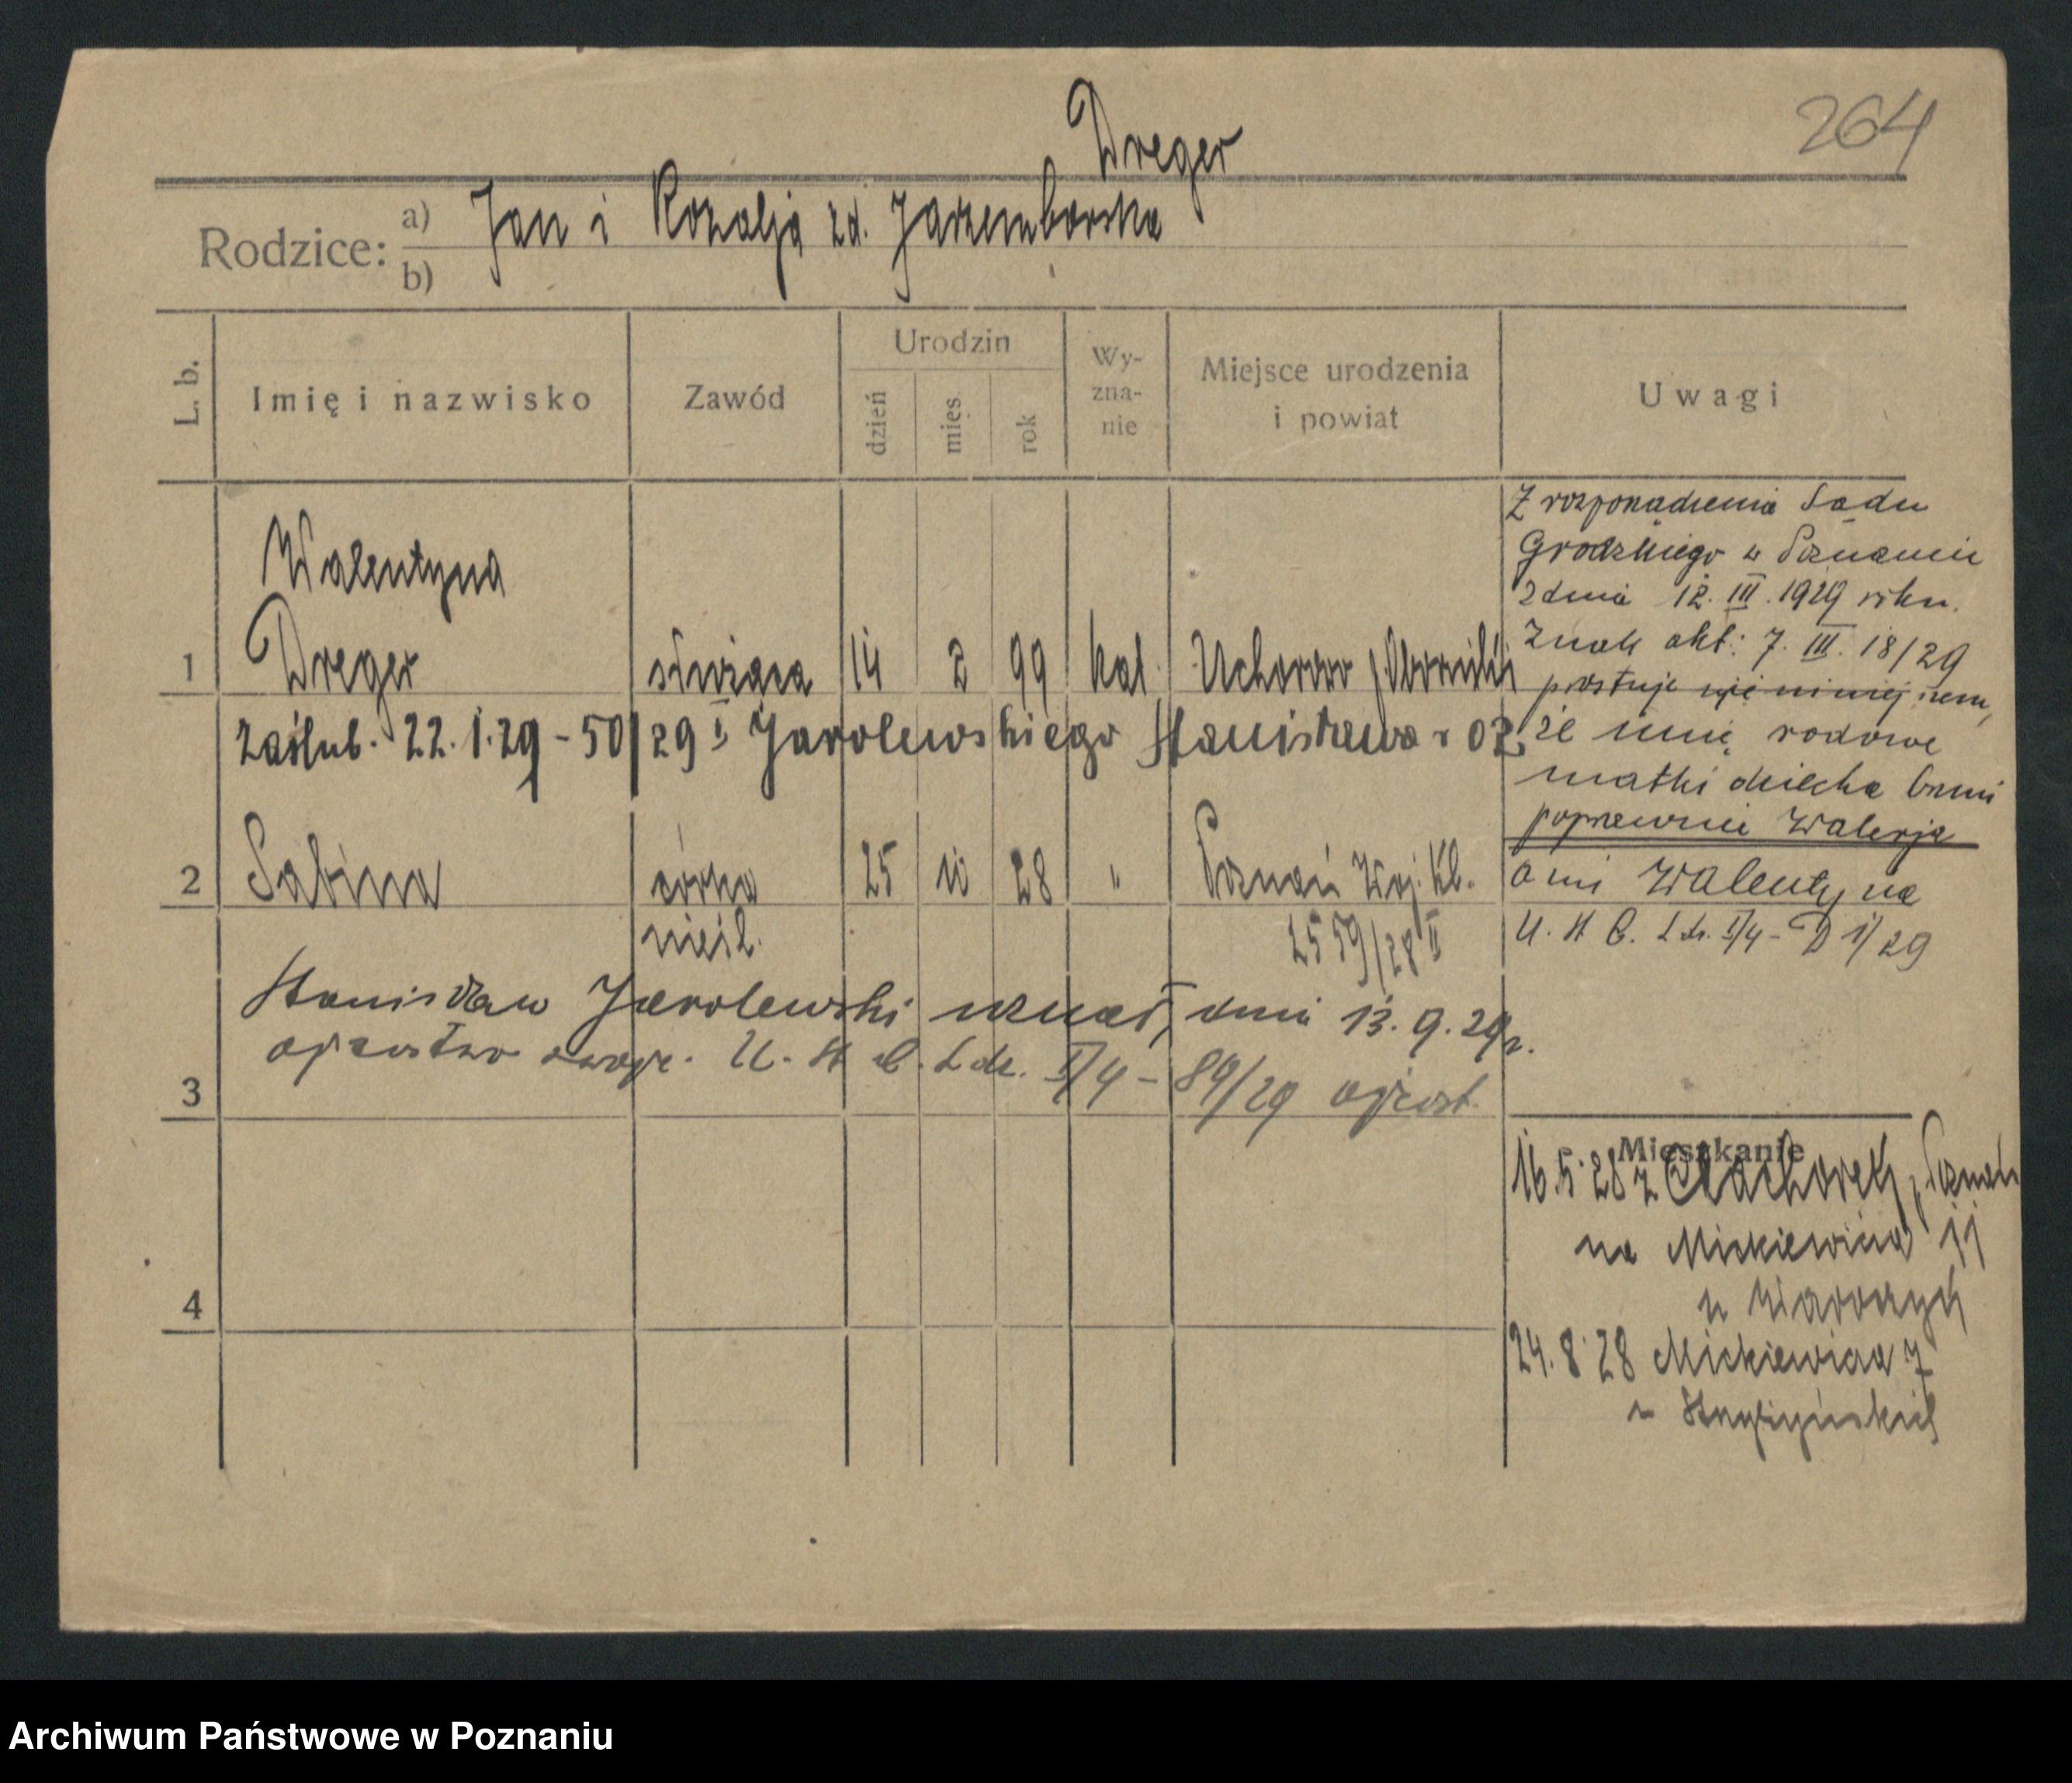 264
Dreger
Rodzice: a) Jan i Rozalja zd. Jarzemborska
b)
L. b.
Imię i nazwisko
Zawód
Urodzin
dzień
mies.
rok
Wy-
zna-
nie
Miejsce urodzenia
i powiat
Uwagi
Walentyna
1 Dreger służąca 14 2 99 kat. Uchorowo, Obornicki
zaślub. 22.1.29 - 50/29 I Jarolewskiego Stanisława r 02.
2 Sabina córka 25 10 28 " Poznań Woj. Kl.
nieśl. 2559/28 II
Stanisław Jarolewski uznał, dnia 13.9.29r.
ojcostwo swoje. U. S. C. L.dz. I/4 - 89/29 ojcost.
3
4
Z rozporządzenia Sądu
Grodzkiego w Poznaniu
z dnia 12. III. 1929 roku.
Znak akt: 7. III. 18/29
prostuje się niniejszem,
że imię rodowe
matki dziecka brzmi
poprawnie Walerja
a nie Walentyna
U. S. C. L.dz. I/4 - D 1/29
Mieszkanie
16.5.28 z Poznań
na Mickiewicza
u
24.8.28 Mickiewicza 7